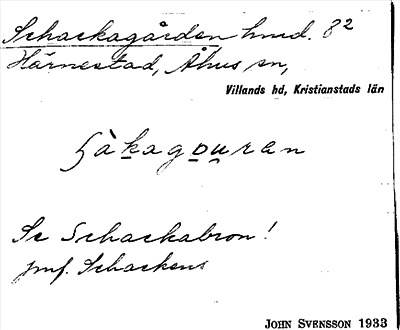 Schackagården hmd. 82
Härnestad, Åhus sn,
Villands hd, Kristianstads län
ʃàkagouran
Se Schackabron!
jmf. Schackens
JOHN SVENSSON 1933